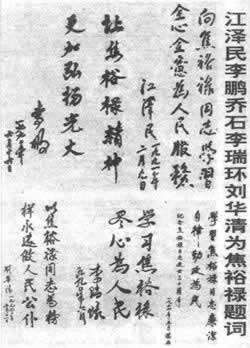 江泽民李鹏乔石李瑞环刘华清为焦裕禄题词
向焦裕禄同志学习
全心全意为人民服务
江泽民
一九九一年二月九日
让焦裕禄精神
更加弘扬光大
李鹏
學習焦裕禄同志廉潔
自律 勤政为民
纪念焦裕禄同志逝世三十周年
学习焦裕禄
尽心为人民
李瑞环
以焦裕禄同志为榜
样永远做人民公仆
刘华清